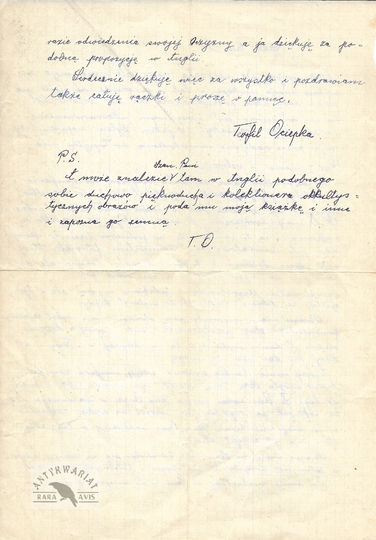 razie odwiedzenia swojej Ojczyzny a ja dziękuję za po-
dobną propozycję w Anglii
Serdecznie dziękuję więc za wszystko i pozdrawiam
także całuję rączki i proszę o pamięć.
Teofil Ociepka
P.S.
Szan. Pani
A może znaleźć V tam w Anglii podobnego
sobie duchowo pięknoducha i kolekcjonera okkultys-
tycznych obrazów i poda mu moją książkę i inne
i zapozna go ze mną.
T.O.
ANTYKWARIAT
RARA AVIS